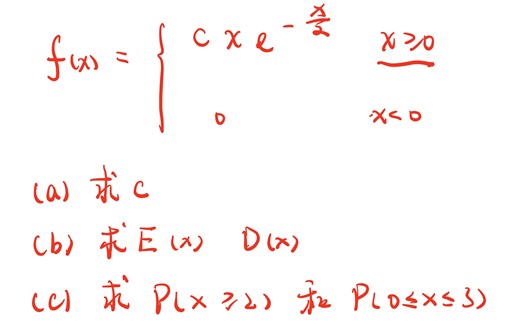 f(x) = { c x e^{-x/2} x ≥ 0
0 x < 0
(a) 求 c
(b) 求 E(x) D(x)
(c) 求 P(x ≥ 2) 和 P(0 ≤ x ≤ 3)